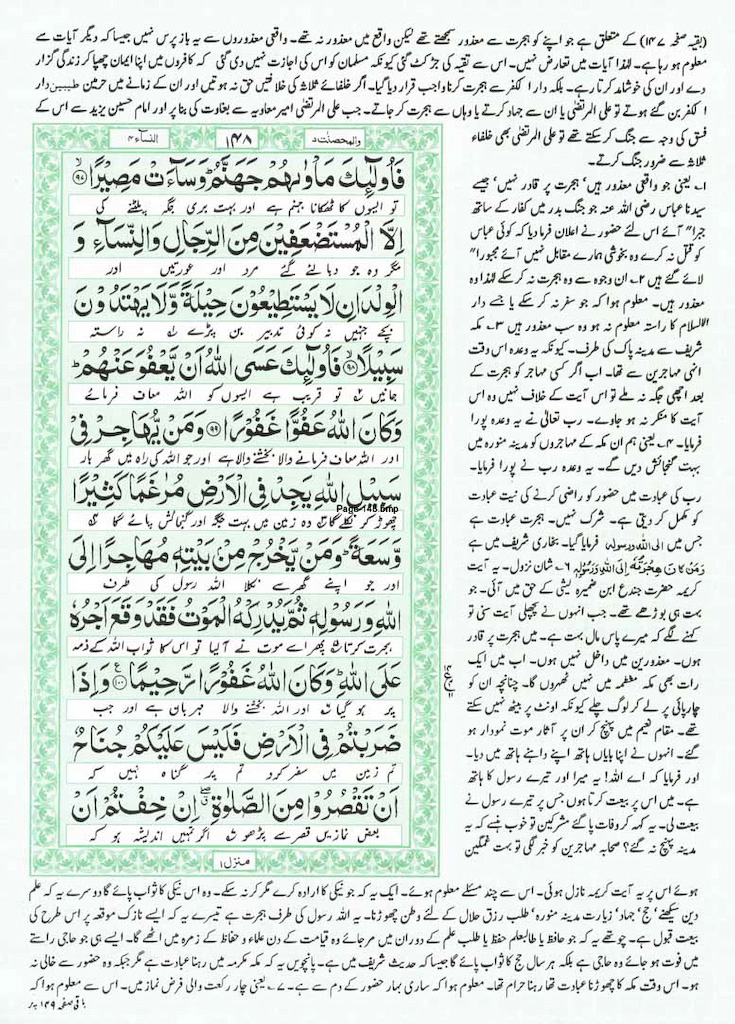 (بقیہ صفحہ ۱۴۷) کے متعلق ہے جو اپنے کو ہجرت سے معذور سمجھتے تھے لیکن واقع میں معذور نہ تھے۔ واقعی معذوروں سے یہ باز پرس نہیں جیسا کہ دیگر آیات سے
معلوم ہو رہا ہے۔ لہٰذا آیات میں تعارض نہیں۔ اس سے تقیہ کی جڑ کٹ گئی کیونکہ مسلمان کو اس کی اجازت نہیں دی گئی کہ کافروں میں اپنا ایمان چھپا کر زندگی گزار
دے اور ان کی خوشامد کرتا رہے۔ بلکہ دار الکفر سے ہجرت کرنا واجب قرار دیا گیا۔ اگر خلفائے ثلاثہ کی خلافتیں حق نہ ہوتیں اور ان کے زمانے میں حرمین طیبین دار
الکفر بن گئے ہوتے تو علی المرتضیٰ یا ان سے جہاد کرتے یا وہاں سے ہجرت کر جاتے۔ جب علی المرتضیٰ امیر معاویہ سے بغاوت کی بنا پر اور امام حسین یزید سے اس کے
فسق کی وجہ سے جنگ کر سکتے تھے تو علی المرتضیٰ بھی خلفاء
ثلاثہ سے ضرور جنگ کرتے۔
۱۔ یعنی جو واقعی معذور ہیں' ہجرت پر قادر نہیں' جیسے
سیدنا عباس رضی اللہ عنہ جو جنگ بدر میں کفار کے ساتھ
جبرا" آئے اس لئے حضور نے اعلان فرما دیا کہ کوئی عباس
کو قتل نہ کرے وہ بخوشی ہمارے مقابل نہیں آئے مجبورا"
لائے گئے ہیں ۲۔ ان وجوہ سے وہ ہجرت نہ کر سکے لہٰذا وہ
معذور ہیں۔ معلوم ہوا کہ جو سفر نہ کر سکے یا جسے دار
الاسلام کا راستہ معلوم نہ ہو وہ سب معذور ہیں ۳۔ مکہ
شریف سے مدینہ پاک کی طرف۔ کیونکہ یہ وعدہ اس وقت
انہی مہاجرین سے تھا۔ اب اگر کسی مہاجر کو ہجرت کے
بعد اچھی جگہ نہ ملے تو اس آیت کے خلاف نہیں وہ اس
آیت کا منکر نہ ہو جاوے۔ رب تعالیٰ نے یہ وعدہ پورا
فرمایا۔ ۴۔ یعنی ہم ان مکہ کے مہاجروں کو مدینہ منورہ میں
بہت گنجائش دیں گے۔ یہ وعدہ رب نے پورا فرمایا۔
رب کی عبادت میں حضور کو راضی کرنے کی نیت عبادت
کو مکمل کر دیتی ہے۔ شرک نہیں۔ ہجرت عبادت ہے
جس میں الی اللہ ورسولہ فرمایا گیا۔ بخاری شریف میں ہے
وَمَنْ كَانَ هِجْرَتُهٗ اِلَى اللّٰهِ وَرَسُوْلِهٖ ۶۔ شان نزول۔ یہ آیت
کریمہ حضرت جندع ابن ضمیرہ لیثی کے حق میں آئی۔ جو
بہت ہی بوڑھے تھے۔ جب انہوں نے پچھلی آیت سنی تو
کہنے لگے کہ میرے پاس مال بہت ہے۔ میں ہجرت پر قادر
ہوں۔ معذورین میں داخل نہیں ہوں۔ اب میں ایک
رات بھی مکہ معظمہ میں نہیں ٹھہروں گا۔ چنانچہ ان کو
چارپائی پر لے کر لوگ چلے کیونکہ اونٹ پر بیٹھ نہیں سکتے
تھے۔ مقام نعیم میں پہنچ کر ان پر آثار موت نمودار ہو
گئے۔ انہوں نے اپنا بایاں ہاتھ اپنے داہنے ہاتھ میں دیا۔
اور فرمایا کہ اے اللہ! یہ میرا اور تیرے رسول کا ہاتھ
ہے۔ میں اس پر بیعت کرتا ہوں جس پر تیرے رسول نے
بیعت لی۔ یہ کہہ کر وفات پا گئے مشرکین تو خوب ہنسے کہ یہ
مدینہ پہنچ نہ گئے؟ صحابہ مہاجرین کو خبر لگی تو بہت غمگین
والمحصنٰت ۵
۱۴۸
النساء ۴
فَاُولٰٓئِكَ مَاْوٰىهُمْ جَهَنَّمُ ؕ وَسَآءَتْ مَصِيْرًا ﴿۹۷﴾
تو ایسوں کا ٹھکانا جہنم ہے اور بہت بری جگہ پلٹنے کی
اِلَّا الْمُسْتَضْعَفِيْنَ مِنَ الرِّجَالِ وَالنِّسَآءِ وَ
مگر وہ جو دبا لئے گئے مرد اور عورتیں اور
الْوِلْدَانِ لَا يَسْتَطِيْعُوْنَ حِيْلَةً وَّلَا يَهْتَدُوْنَ
بچے جنہیں نہ کوئی تدبیر بن پڑے نہ راستہ
سَبِيْلًا ﴿۹۸﴾ فَاُولٰٓئِكَ عَسَى اللّٰهُ اَنْ يَّعْفُوَ عَنْهُمْ ؕ
جانیں تو قریب ہے ایسوں کو اللہ معاف فرمائے
وَكَانَ اللّٰهُ عَفُوًّا غَفُوْرًا ﴿۹۹﴾ وَمَنْ يُّهَاجِرْ فِيْ
اور اللہ معاف فرمانے والا بخشنے والا ہے اور جو اللہ کی راہ میں گھر بار
سَبِيْلِ اللّٰهِ يَجِدْ فِى الْاَرْضِ مُرٰغَمًا كَثِيْرًا
Page-148.bmp
چھوڑ کر نکلے گا وہ زمین میں بہت جگہ اور گنجائش پائے گا
وَّسَعَةً ؕ وَمَنْ يَّخْرُجْ مِنْۢ بَيْتِهٖ مُهَاجِرًا اِلَى
اور جو اپنے گھر سے نکلا اللہ رسول کی طرف
اللّٰهِ وَرَسُوْلِهٖ ثُمَّ يُدْرِكْهُ الْمَوْتُ فَقَدْ وَقَعَ اَجْرُهٗ
ہجرت کرتا پھر اسے موت نے آلیا تو اس کا ثواب اللہ کے ذمہ
عَلَى اللّٰهِ ؕ وَكَانَ اللّٰهُ غَفُوْرًا رَّحِيْمًا ﴿۱۰۰﴾ وَاِذَا
پر ہو گیا اور اللہ بخشنے والا مہربان ہے اور جب
ضَرَبْتُمْ فِى الْاَرْضِ فَلَيْسَ عَلَيْكُمْ جُنَاحٌ
تم زمین میں سفر کرو تم پر گناہ نہیں کہ
اَنْ تَقْصُرُوْا مِنَ الصَّلٰوةِ ۖ اِنْ خِفْتُمْ اَنْ
بعض نمازیں قصر سے پڑھو اگر تمہیں اندیشہ ہو کہ
منزل ۱
ہوئے اس پر یہ آیت کریمہ نازل ہوئی۔ اس سے چند مسئلے معلوم ہوئے۔ ایک یہ کہ جو نیکی کا ارادہ کرے مگر کر نہ سکے۔ وہ اس نیکی کا ثواب پائے گا دوسرے یہ کہ علم
دین سیکھنے' حج' جہاد' زیارت مدینہ منورہ' طلب رزق حلال کے لئے وطن چھوڑنا۔ یہ اللہ رسول کی طرف ہجرت ہے تیسرے یہ کہ ایسے نازک موقعہ پر اس طرح کی
بیعت قبول ہے۔ چوتھے یہ کہ جو حافظ یا طالبعلم حفظ یا طلب علم کے دوران میں مر جائے وہ قیامت کے دن علماء و حفاظ کے زمرہ میں اٹھے گا۔ ایسے ہی جو حاجی راستے
میں فوت ہو جائے وہ حاجی ہے بلکہ ہر سال حج کا ثواب پائے گا جیسا کہ حدیث شریف میں ہے۔ پانچویں یہ کہ مکہ مکرمہ میں رہنا عبادت ہے مگر جبکہ وہ حضور سے خالی نہ
ہو۔ اس وقت مکہ کا چھوڑنا عبادت تھا رہنا حرام تھا۔ معلوم ہوا کہ ساری بہار حضور کے دم سے ہے۔ ۷۔ یعنی چار رکعت والی فرض نماز میں۔ اس سے معلوم ہوا کہ
باقی صفحہ ۱۴۹ پر